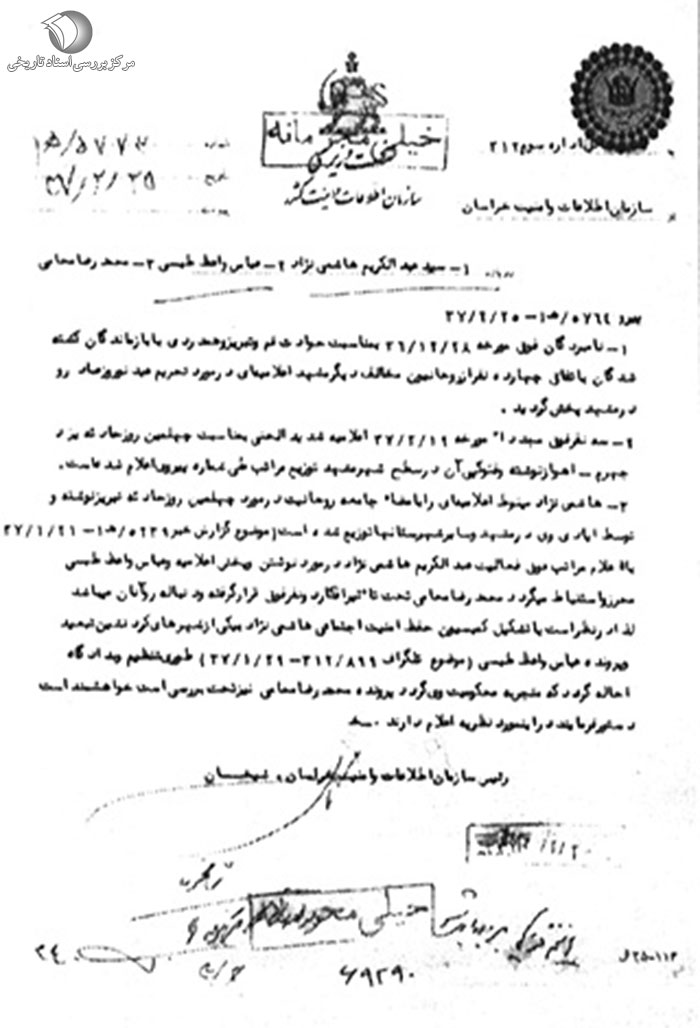 مرکز بررسی اسناد تاریخی
خیلی محرمانه
نخست وزیری
سازمان اطلاعات و امنیت کشور
اداره سوم ۳۱۲
شماره ۵۷۷۳/ه۱
تاریخ ۳۷/۲/۲۵
سازمان اطلاعات وامنیت خراسان
۱- سید عبدالکریم هاشمی نژاد ۲- عباس واعظ طبسی ۳- محمد رضا محامی
پیرو ۵۷۶۴/ه۱- ۳۷/۲/۲۵
۱- نامبردگان فوق مورخه ۳۶/۱۲/۲۸ بمناسبت حوادث قم وتبریزوهمدردی بابازماندگان کشته
شدگان باتفاق چهارده نفرازروحانیین مخالف دیگرمشهد اعلامیه‌ای درمورد تحریم عید نوروزصادر و
درمشهد پخش گردید .
۲- سه نفرفوق مجددا" مورخه ۳۷/۲/۱۹ اعلامیه شدیدالحنی بمناسبت چهلمین روزحادثه یزد
جهرم - اهوازنوشته وفتوکپی آن درسطح شهرمشهد توزیع مراتب طی شماره پیروی اعلام شده‌است.
۳- هاشمی نژاد منوط اعلامیه‌ای رابامضاء جامعه روحانیت درمورد چهلمین روزحادثه تبریزنوشته و
توسط ایادی وی درمشهد وسایرشهرستانها توزیع شده است (موضوع گزارش خبر ۵۲۳۹/ه۱- ۳۷/۱/۲۱)
بااعلام مراتب فوق فعالیت عبدالکریم هاشمی نژاد درمورد نوشتن وپخش اعلامیه وعباس واعظ طبسی
محرزواستنباط میگردد محمد رضا محامی تحت تاثیرافکاردونفرفوق قرارگرفته ودنباله روآنان میباشد
لذا درنظراست با تشکیل کمیسیون حفظ امنیت اجتماعی هاشمی نژاد بیکی ازشهرهای کردنشین تبعید
وپرونده عباس واعظ طبسی (موضوع تلگراف ۳۱۲/۸۹۹- ۳۷/۱/۲۹) طوری تنظیم وبدادگاه
احاله گردد که منجربه محکومیت وی گردد پرونده محمد رضا محامی نیزتحت بررسی است خواهشمند است
دستورفرمایند دراینمورد نظریه اعلام دارند .
رئیس سازمان اطلاعات وامنیت خراسان . شیخان
خیلی محرمانه
۶۹۲۹۰
۲۵۰-۱۱۳ ل
۲۴۰